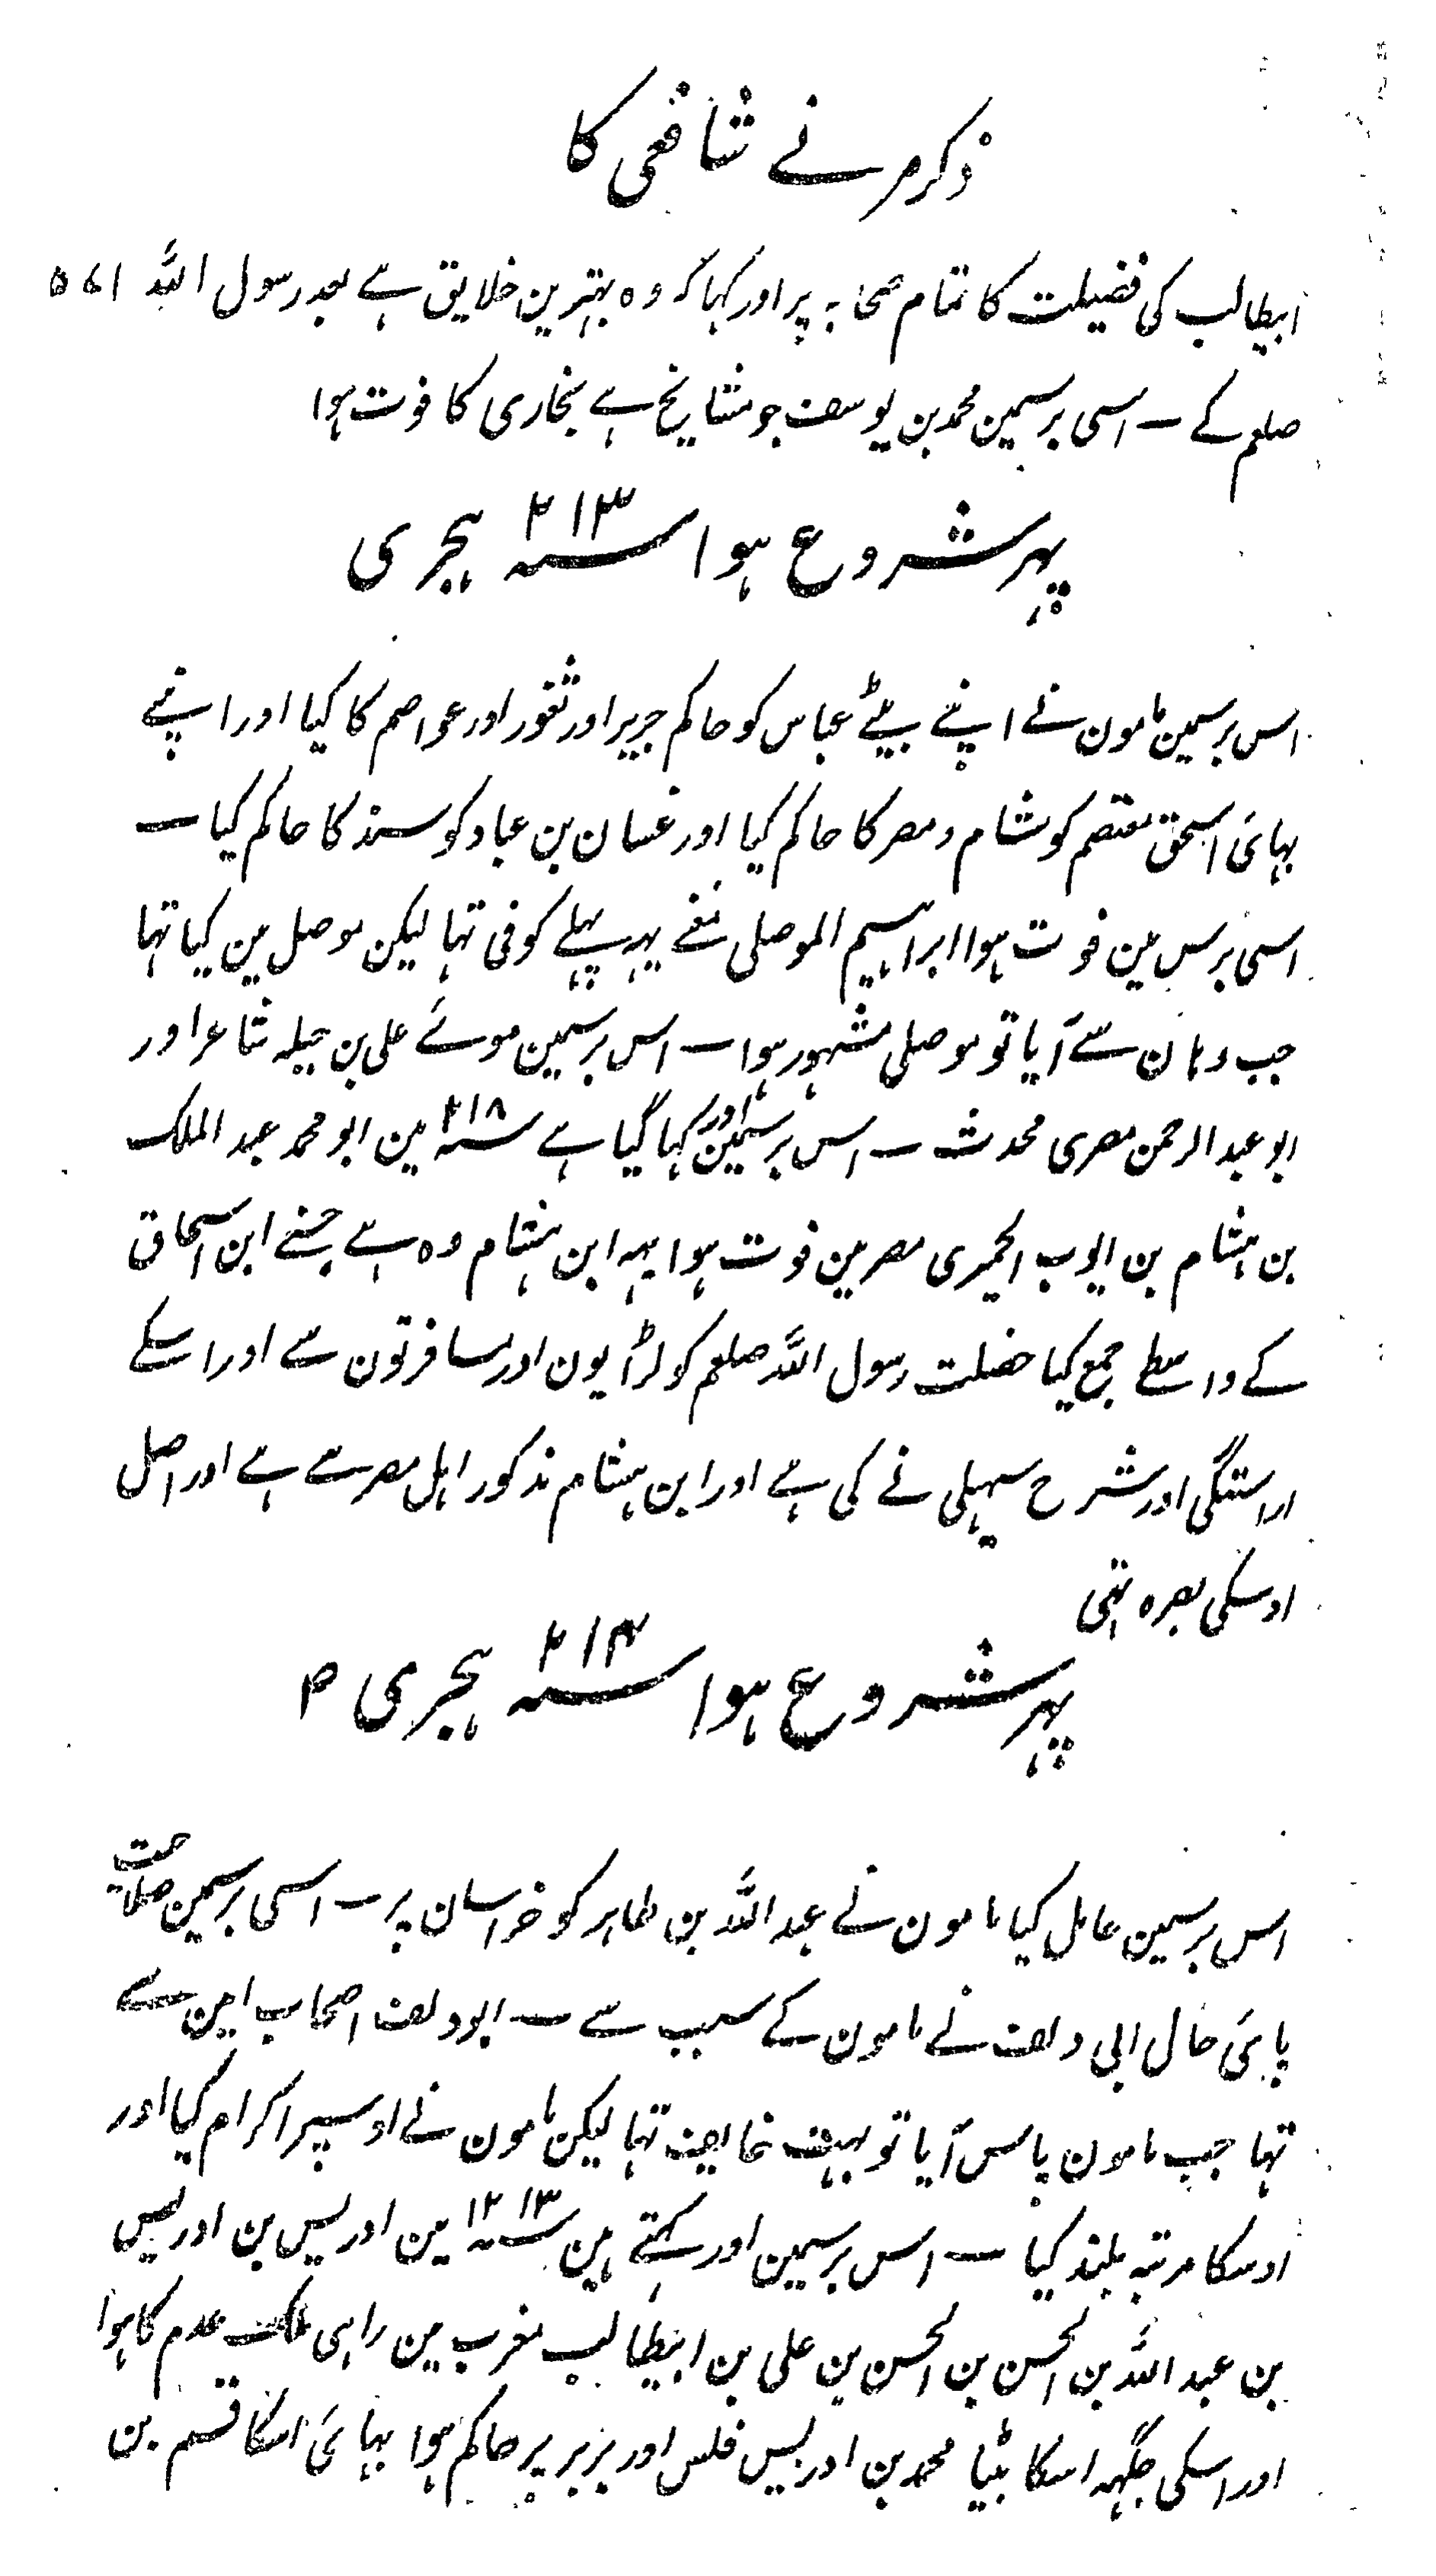 ذکر مرنے شافعی کا
ابیطالب کی فضیلت کا تمام صحابہ پر اور کہا کہ وہ بہترین خلایق ہے بعد رسول اللہ ۵۷۱
صلعم کے ــ اسی برسمین محمد بن یوسف جو مشایخ ہے بخاری کا فوت ہوا
پہر شروع ہوا سنہ ۲۱۳ ہجری
اس برسمین مامون نے اپنے بیٹے عباس کو حاکم جریر اور ثغور اور عواصم کا کیا اور اپنے
بہائی اسحق معتصم کو شام و مصر کا حاکم کیا اور غسان بن عباد کو سند کا حاکم کیا ــ
اسی برس مین فوت ہوا ابراہیم الموصلی مغنے یہہ پہلے کوفی تہا لیکن موصل مین گیا تہا
جب وہان سے آیا تو موصلی مشہور ہوا ــ اس برسمین موئے علی بن جبلہ شاعر اور
ابو عبد الرحمن مصری محدث ــ اس برسمین اور کہا گیا ہے سنہ ۲۱۸ مین ابو محمد عبد الملک
بن ہشام بن ایوب الحمیری مصر مین فوت ہوا یہہ ابن ہشام وہ ہے جسنے ابن اسحاق
کے واسطے جمع کیا خصلت رسول اللہ صلعم کو لڑایون اور مسافرتون سے اور اسکے
اراستگی اور شرح سہیلی نے کی ہے اور ابن ہشام مذکور اہل مصر سے ہے اور اصل
اوسکی بصرہ تہی
پہر شروع ہوا سنہ ۲۱۴ ہجری م
اس برسمین عامل کیا مامون نے عبد اللہ بن طاہر کو خراسان پر ــ اسی برسمین صلاحیت
پائی حال ابی دلف نے مامون کے سبب سے ــ ابو دلف اصحاب امین سے
تہا جب مامون پاس آیا تو بہت خایف تہا لیکن مامون نے اوسپر اکرام کیا اور
اوسکا مرتبہ بلند کیا ــ اس برسمین اور کہتے ہین سنہ ۱۲۱۳ مین ادریس بن ادریس
بن عبد اللہ بن الحسن بن الحسن بن علی بن ابیطالب مغرب مین راہی ملک عدم کا ہوا
اور اسکی جگہہ اسکا بیٹا محمد بن ادریس فلس اور بربر پر حاکم ہوا بہائی اسکا قسم بن